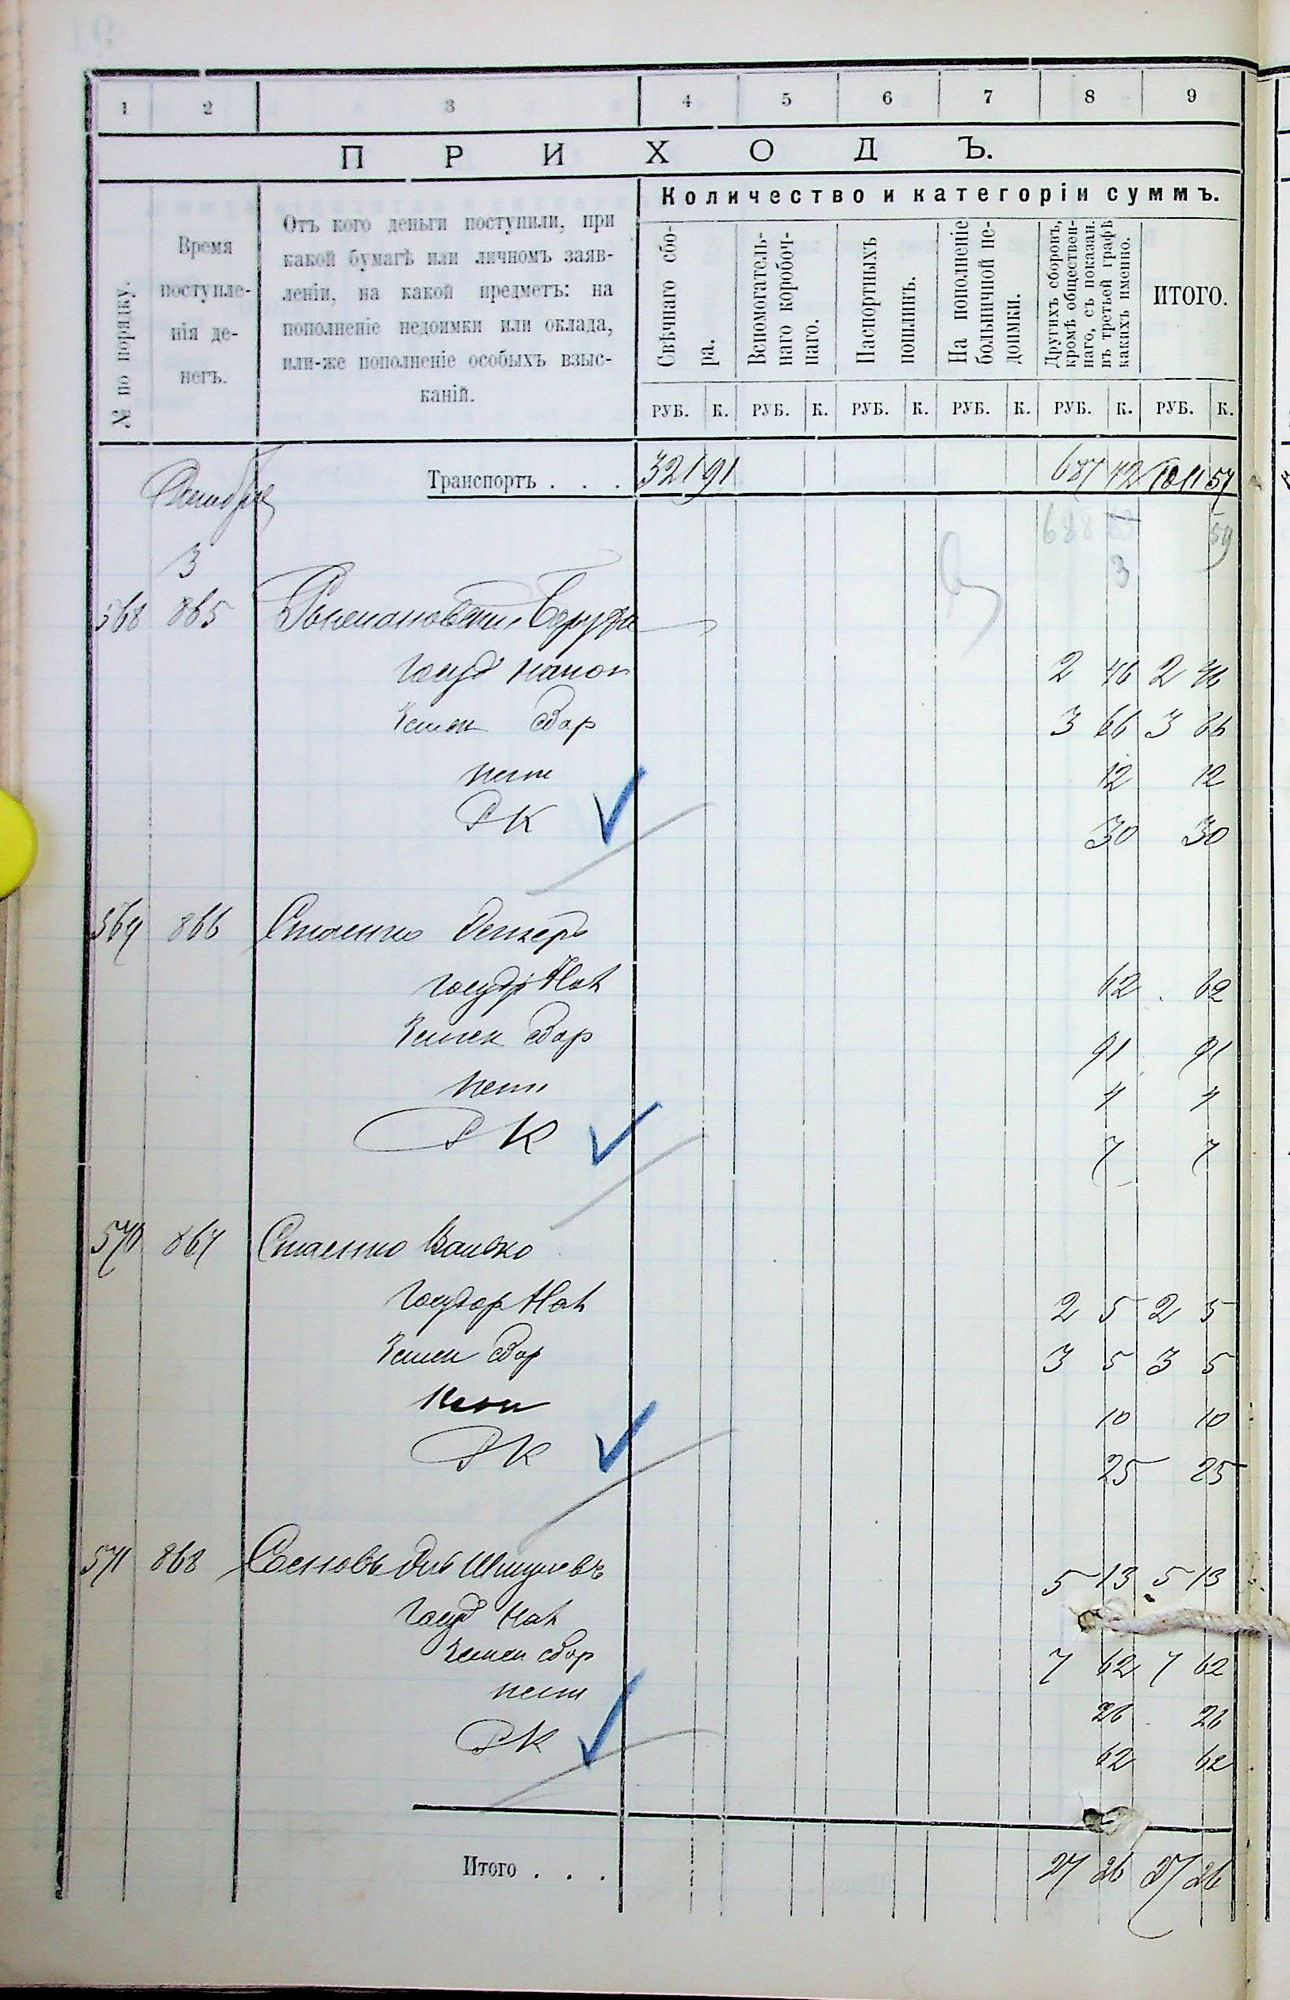 1 2 3 4 5 6 7 8 9
ПРИХОДЪ.
№ по порядку.
Время поступле-
нія де-
негъ.
Отъ кого деньги поступили, при
какой бумагѣ или личномъ заяв-
леніи, на какой предметъ: на
пополненіе недоимки или оклада,
или-же пополненіе особыхъ взыс-
каній.
Количество и категоріи суммъ.
Свѣчнаго сбо-
ра.
Вспомогатель-
наго коробоч-
наго.
Паспортныхъ
пошлинъ.
На пополненіе
больничной не-
доимки.
Другихъ сборовъ,
кромѣ обществен-
наго, съ показан.
въ третьей графѣ
какихъ именно.
ИТОГО.
РУБ. К. РУБ. К. РУБ. К. РУБ. К. РУБ. К. РУБ. К.
Октября
Транспортъ . . . 321 91 687 72 1011 57
688 59
3 3
568 865
Госуд Налог 2 46 2 46
Земск Сбор 3 66 3 66
пени 12 12
РК 30 30
569 866 Стаенно
Госудр Нал 62 62
Земск Сбор 91 91
пени 4 4
РК 7 7
570 867 Стаенно
Государ Нал 2 5 2 5
Земск Сбор 3 5 3 5
пени 10 10
РК 25 25
571 868 5 13 5 13
Госуд Нал
Земск сбор 7 62 7 62
пени 26 26
РК 62 62
Итого . . . 27 26 27 26